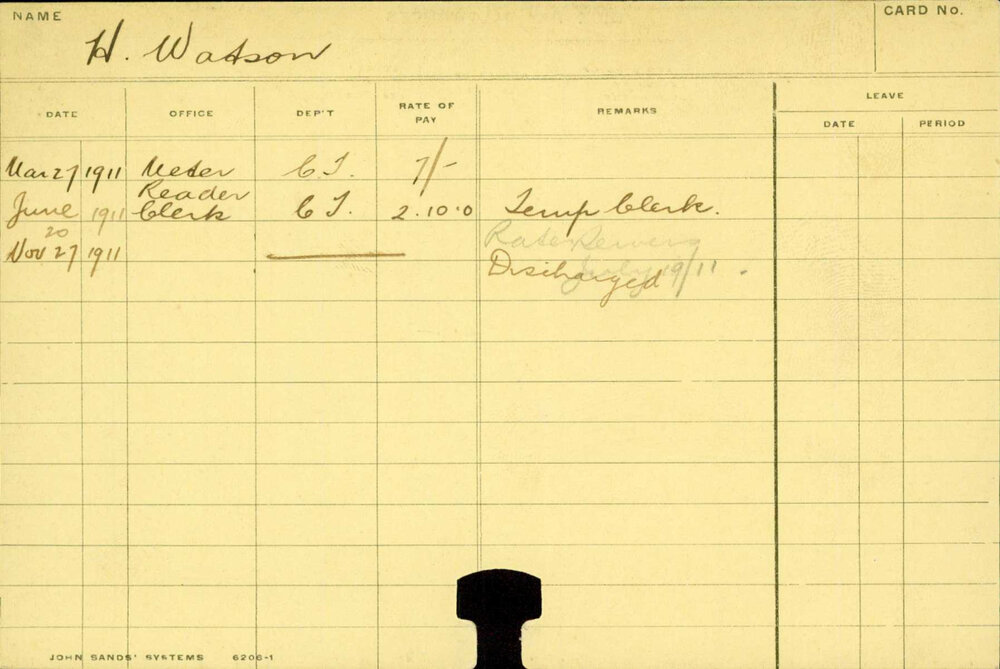 NAME
CARD No.
H. Watson
DATE OFFICE DEP'T RATE OF PAY REMARKS LEAVE
DATE PERIOD
Mar 27 1911 Meter Reader C.T. 7/-
June 20 1911 Clerk C T. 2.10.0 Temp Clerk.
Nov 27 1911 Discharged
July 19/11.
JOHN SANDS' SYSTEMS 6206-1